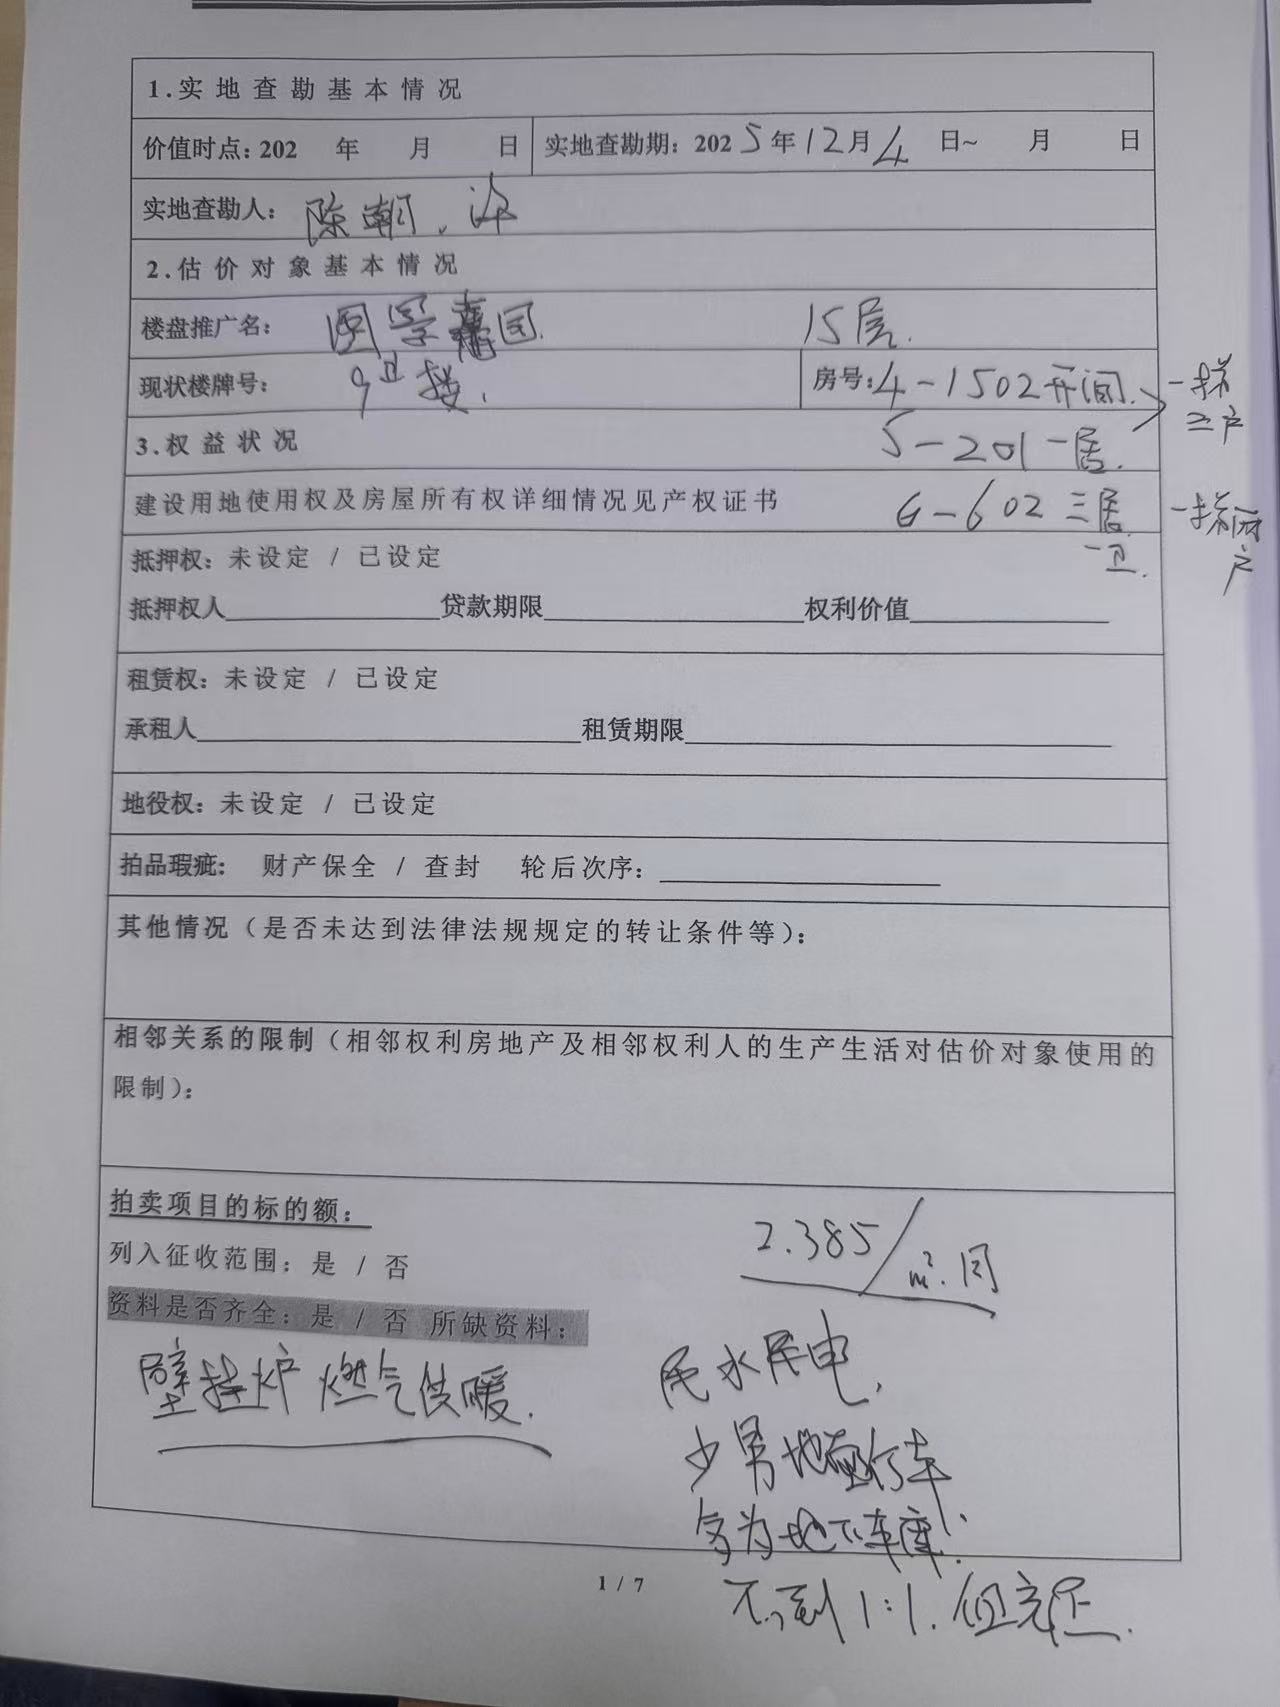 1.实地查勘基本情况
价值时点：202 年 月 日 实地查勘期：2025年12月4日~ 月 日
实地查勘人：陈朝、
2.估价对象基本情况
楼盘推广名： 园 15层.
现状楼牌号：9 楼. 房号：4-1502开间. 一梯
5-201一居. 户
3.权益状况
建设用地使用权及房屋所有权详细情况见产权证书 6-602三居 一梯两
一卫. 户
抵押权：未设定 / 已设定
抵押权人 贷款期限 权利价值
租赁权：未设定 / 已设定
承租人 租赁期限
地役权：未设定 / 已设定
拍品瑕疵： 财产保全 / 查封 轮后次序：
其他情况（是否未达到法律法规规定的转让条件等）：
相邻关系的限制（相邻权利房地产及相邻权利人的生产生活对估价对象使用的
限制）：
拍卖项目的标的额：
2.385/m².月
列入征收范围：是 / 否
资料是否齐全：是 / 否 所缺资料：
壁挂炉 燃气供暖. 民水民电,
少 地 车
多为地下车库.
不到1:1.但充足.
1 / 7